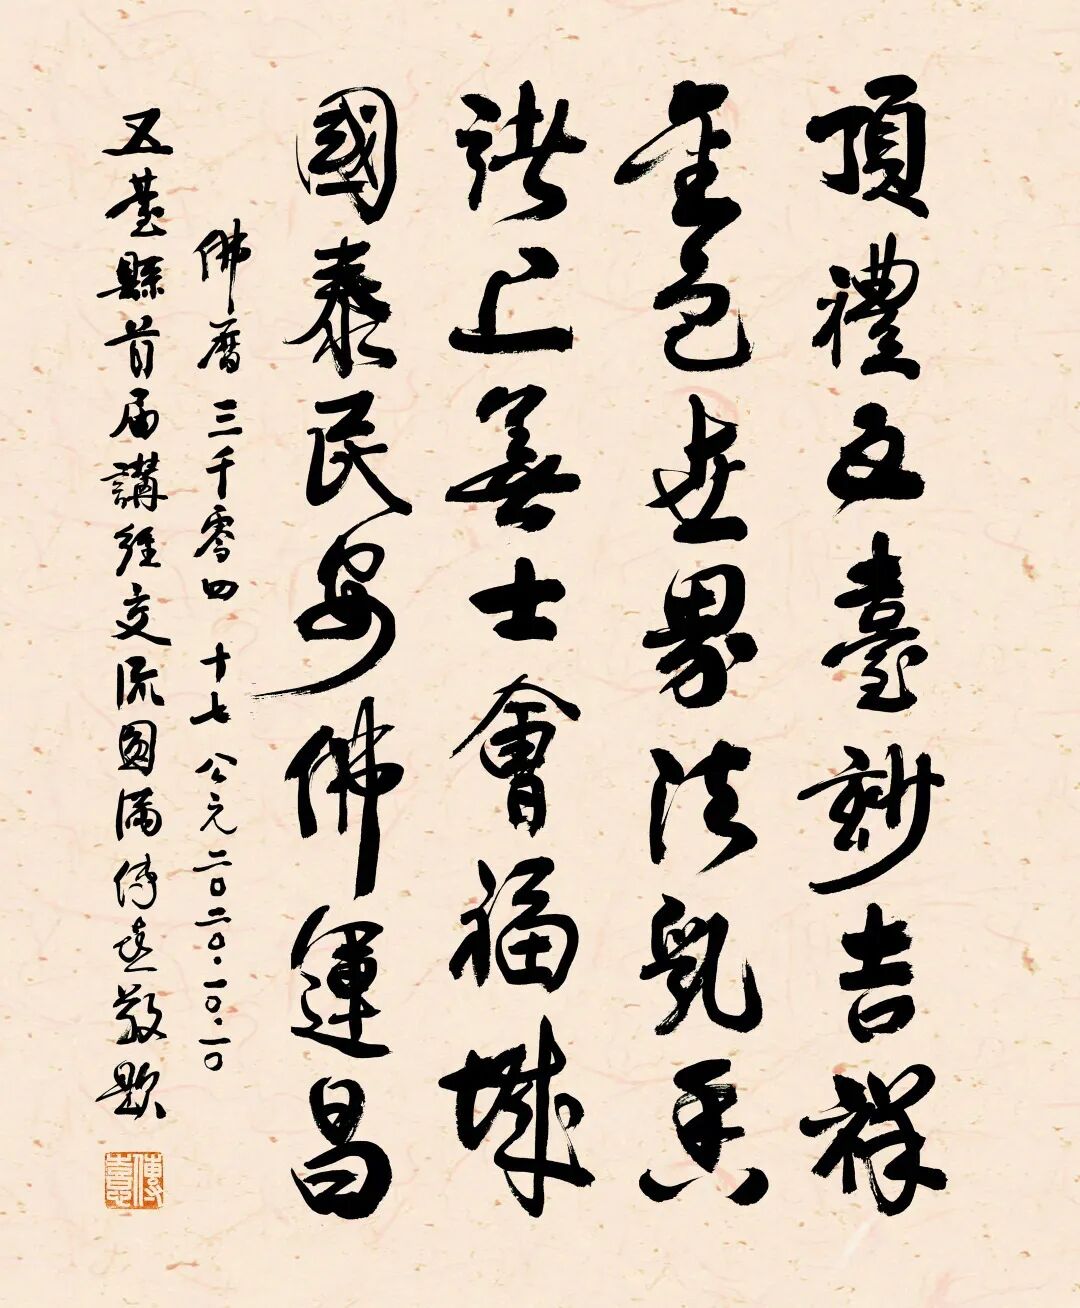 頂禮五臺玅吉祥
金色世界法乳香
諸上善士會福城
國泰民安佛運昌
佛曆三千零四十七 公元二〇二〇.一〇.一〇
五臺縣首届講經交流圓滿傳敬題
傳